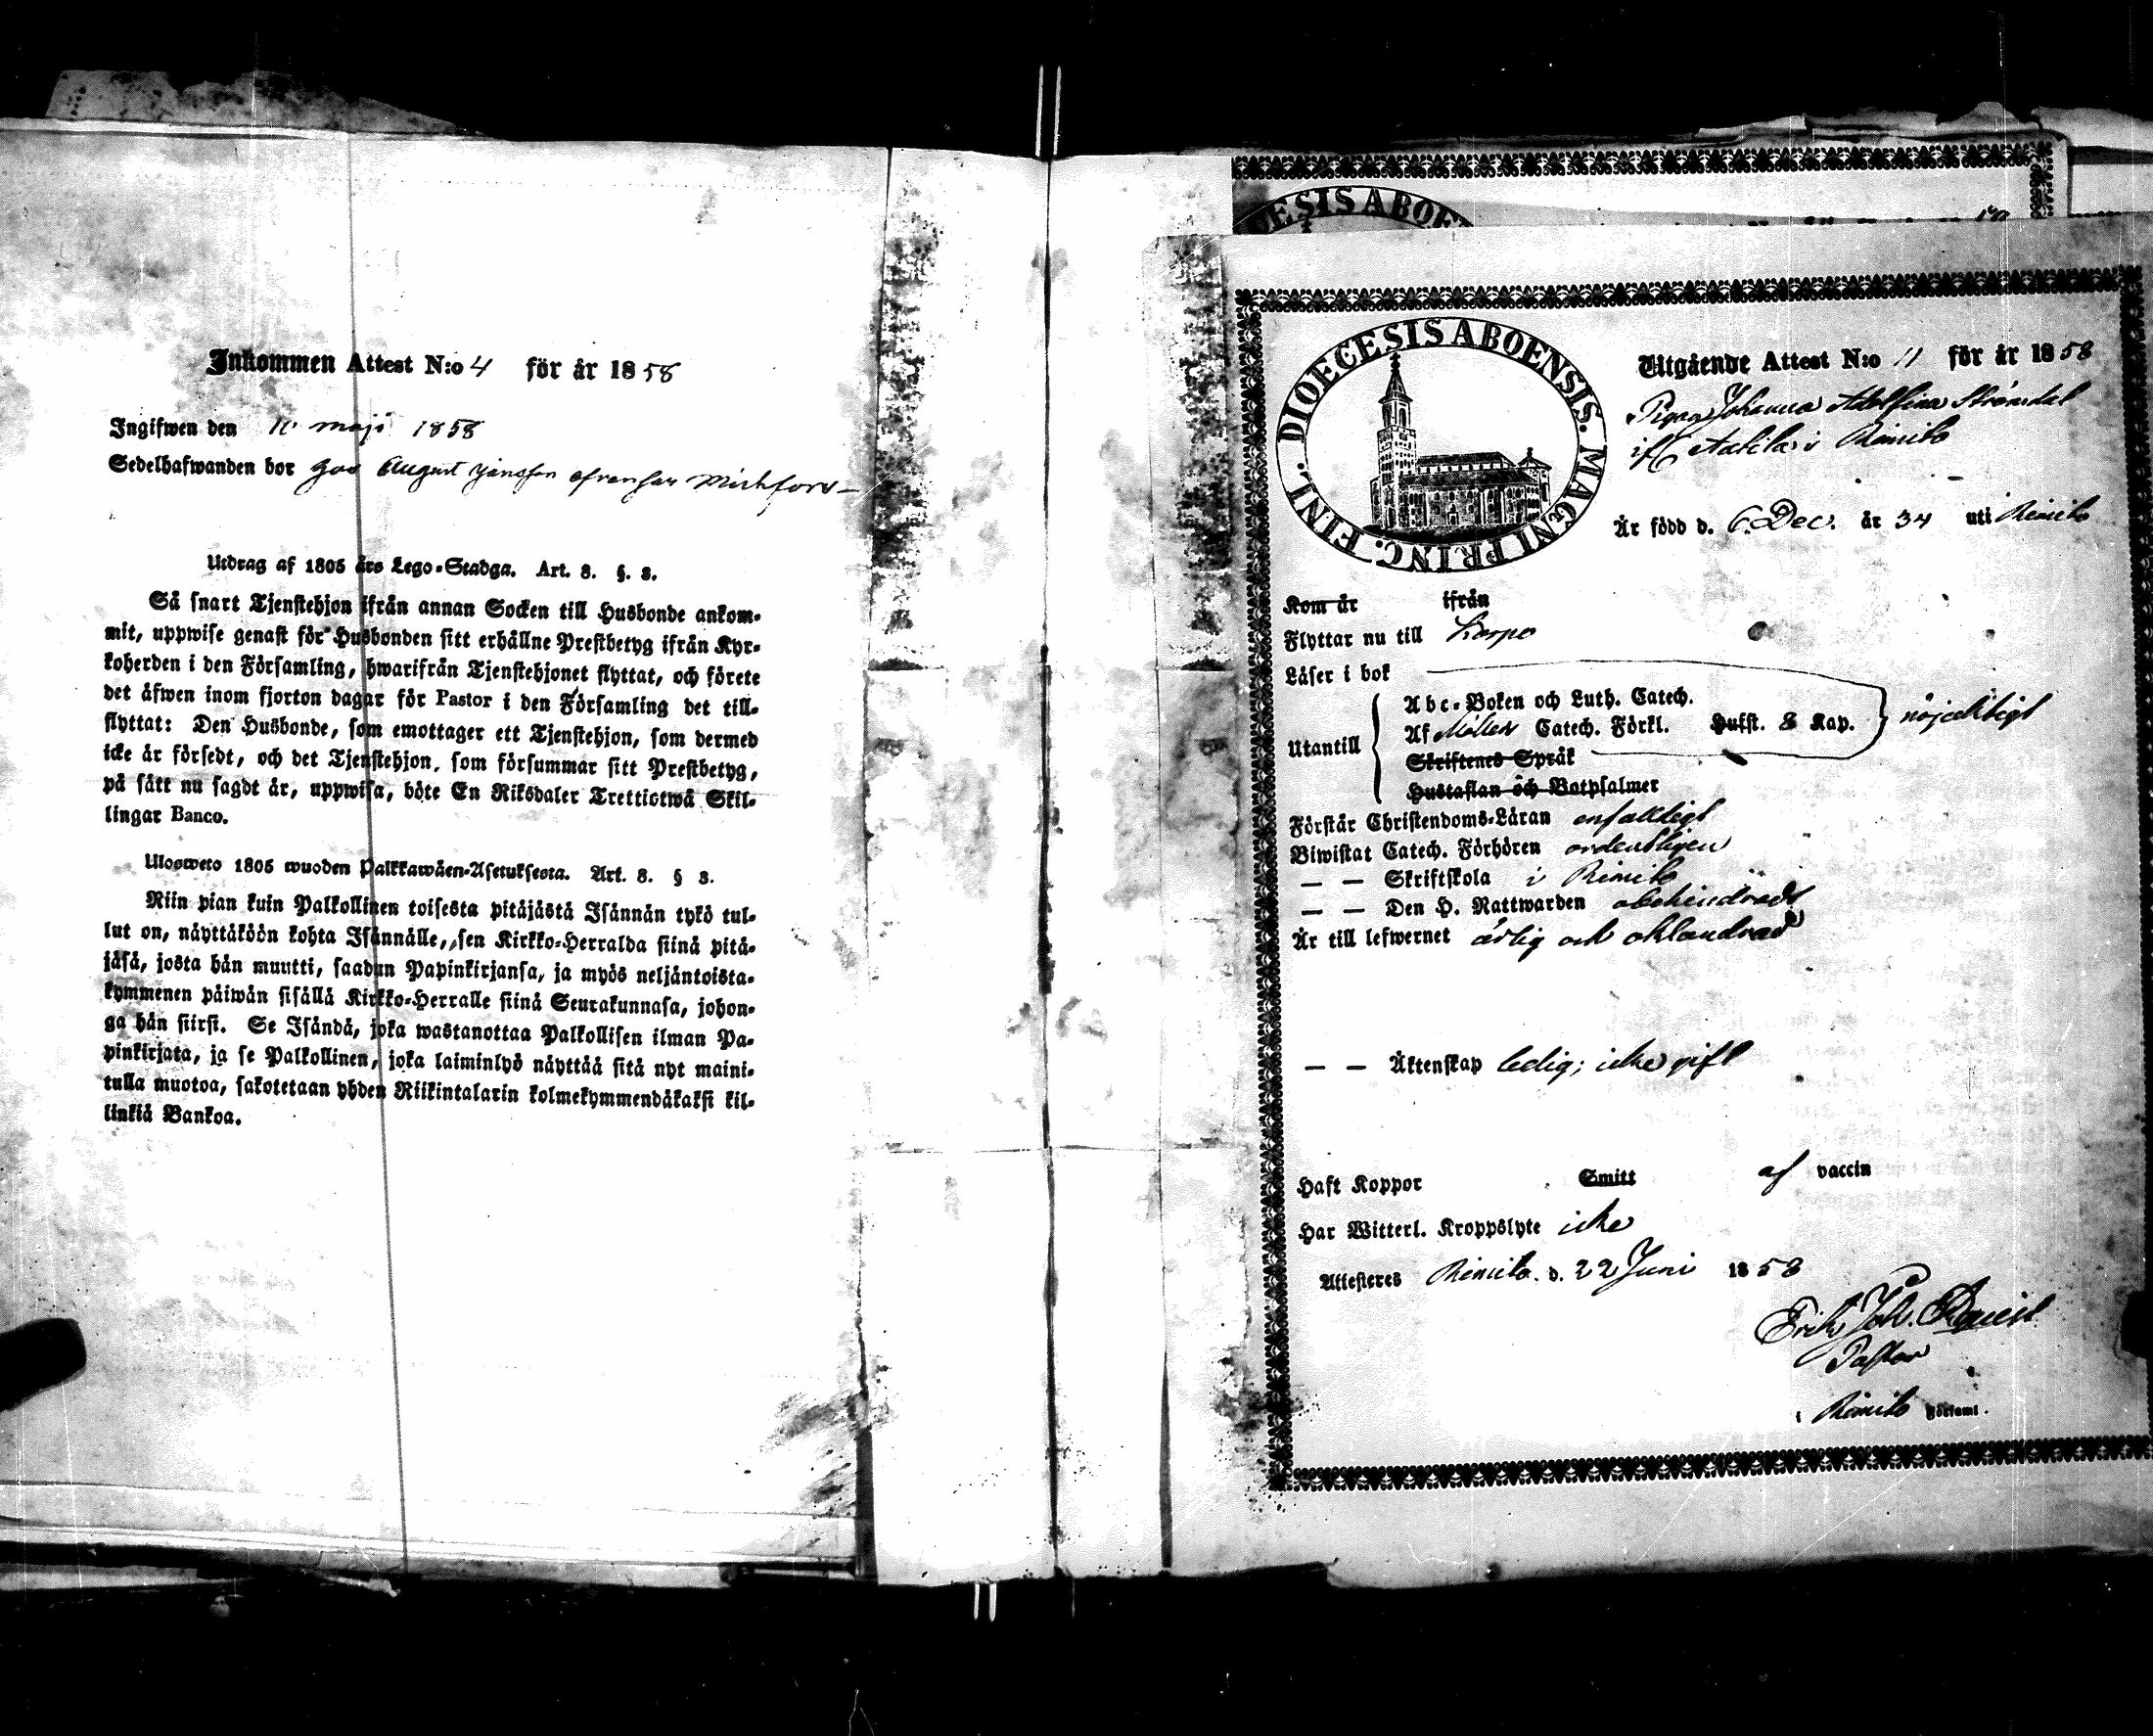 Inkommen Attest N:o 4 för år 1858
Ingifwen den 10 maji 1858
Sedelhafwanden bor hos August Jansson
Utdrag af 1805 års Lego-Stadga. Art. 8. §. 3.
Så snart Tjenstehjon ifrån annan Socken till Husbonde ankom-
mit, uppwise genast för Husbonden sitt erhållne Prestbetyg ifrån Kyr-
koherden i den Församling, hwarifrån Tjenstehjonet flyttat, och förete
det äfwen inom fjorton dagar för Pastor i den Församling det till-
flyttat: Den Husbonde, som emottager ett Tjenstehjon, som dermed
icke är försedt, och det Tjenstehjon, som försummar sitt Prestbetyg,
på sätt nu sagdt är, uppwisa, böte En Riksdaler Trettiotwå Skil-
lingar Banco.
Ulosweto 1805 wuoden Palkkawäen-Asetuksesta. Art. 8. § 3.
Niin pian kuin Palkollinen toisesta pitäjästä Isännän tykö tul-
lut on, näyttäköön kohta Isännälle, sen Kirkko-Herralda siinä pitä-
jäsä, josta hän muutti, saadun Papinkirjansa, ja myös neljäntoista-
kymmenen päiwän sisällä Kirkko-Herralle siinä Seurakunnasa, johon-
ga hän siirsi. Se Isändä, joka wastanottaa Palkollisen ilman Pa-
pinkirjata, ja se Palkollinen, joka laiminlyö näyttää sitä nyt maini-
tulla muotoa, sakotetaan yhden Riikintalarin kolmekymmendäkaksi kil-
linkiä Bankoa.
DIOECESIS ABOENSIS. MAGNI PRINC. FINL.
Utgående Attest N:o 11 för år 1858
Pigan Johanna Adolfina Strömdal
if Attila i Rimito
Är född d. 6 Dec. år 34 uti Rimito
Kom år ifrån
Flyttar nu till Korpo
Läser i bok
Utantill
Abc-Boken och Luth. Catech.
Af Möller Catech. Förkl. Husst. 8 Kap. nöjaktigt
Skriftenes Språk
Hustaflan och Botpsalmer
Förstår Christendoms-Läran enfaldigt
Biwistat Catech. Förhören ordentligen
— — Skriftskola i Rimito
— — Den H. Nattwarden obehindrad
Är till lefwernet ärlig och oklandrad
— — Äktenskap ledig; icke gift
Haft Koppor Smitt af vaccin
Har Witterl. Kroppslyte icke
Attesteres Rimito d. 22 Juni 1858
Erik Joh.
Pastor
i Rimito Församl.